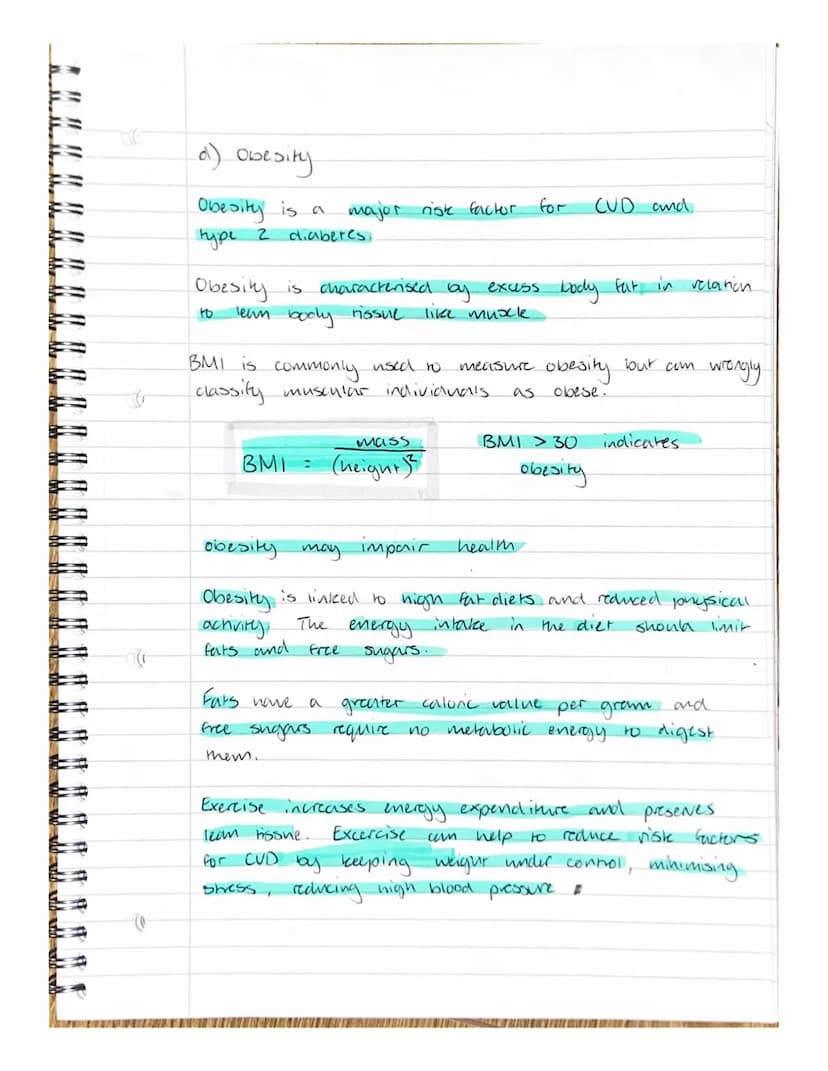 d) Obesity
Obesity is a major risk factor for CVD and
type 2 diabetes.
Obesity is characterised by excess body fat in relation
to lean body tissue like muscle
BMI is commonly used to measure obesity but can wrongly
classify muscular individuals as obese.
BMI = mass / (height)²
BMI > 30 indicates
obesity
obesity may impair health
Obesity is linked to high fat diets and reduced physical
activity. The energy intake in the diet should limit
fats and free sugars.
Fats have a greater caloric value per gram and
free sugars require no metabolic energy to digest
them.
Exercise increases energy expenditure and preserves
lean tissue. Excercise can help to reduce risk factors
for CVD by keeping weight under control, minimising
stress, reducing high blood pressure.